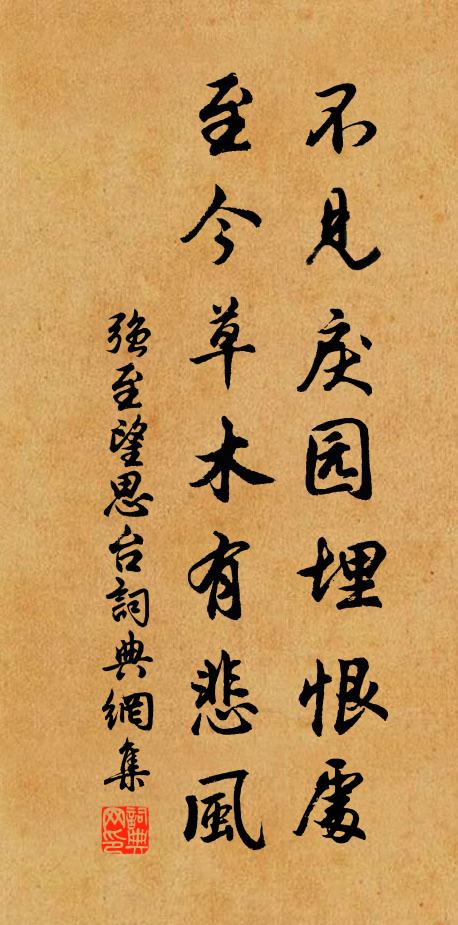 不见戾园埋恨處
至今草木有悲風
强至望思台詞典網集
詞典网印